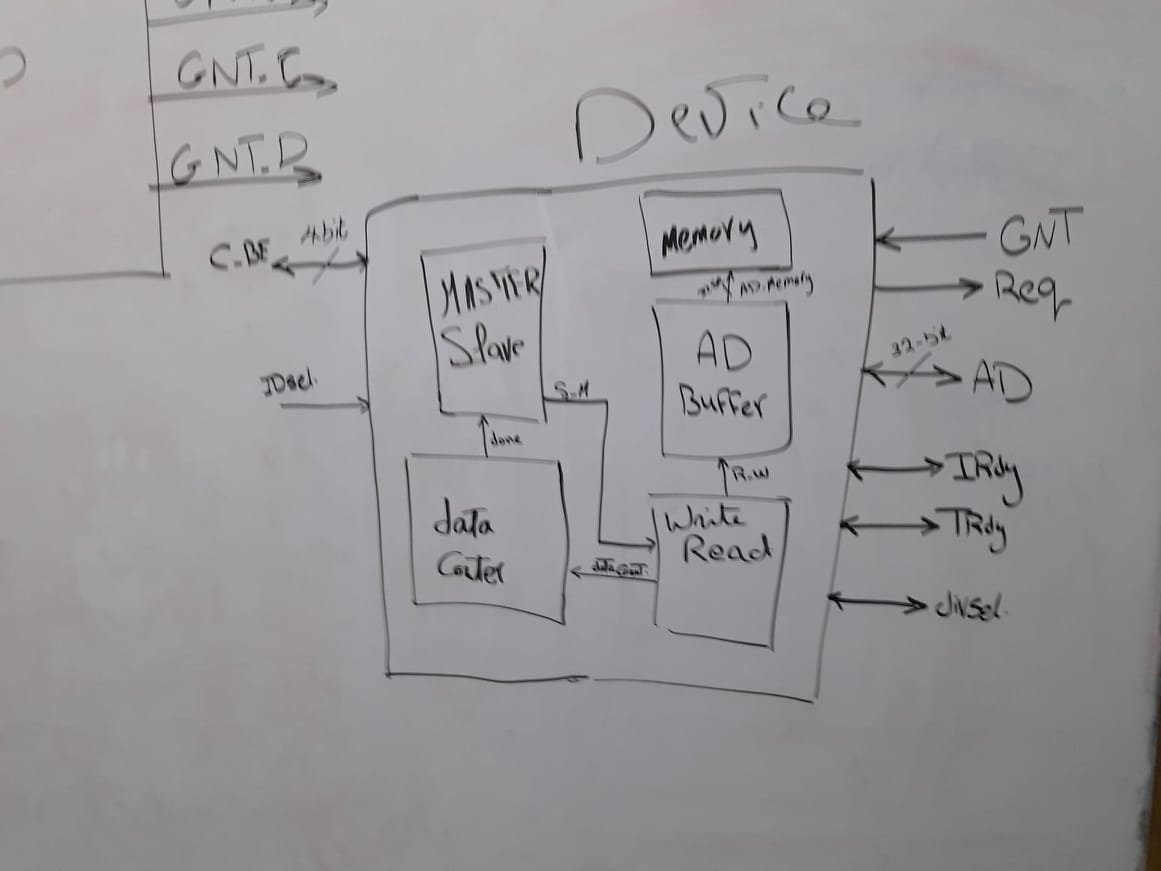 GNT.C
GNT.D
Device
C_BE
4bit
IDsel.
MASTER
Slave
S_M
done
data
Conter
Memory
AD.Memory
AD
Buffer
R_W
Write
Read
data count.
GNT
Req
32-bit
AD
IRdy
TRdy
divSel.